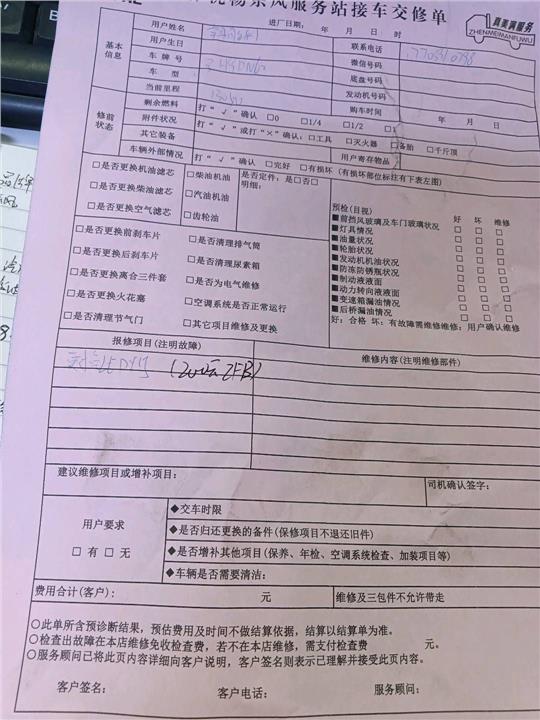 景风服务站接车交修单
真美满服务
ZHENMEIMANFUWU
进厂日期: 年 月 日 时
基本信息
用户姓名
联系电话
用户生日
微信号码
车 牌 号
底盘号码
车 型
发动机号码
当前里程
购车时间 年 月 日
修前状态
剩余燃料 打“√”确认 □0 □1/4 □1/2 □1
附件状况 打“√”或打“×”确认: □工具 □灭火器 □备胎 □千斤顶
其它装备 用户寄存物品
车辆外部情况 打“√”确认 □完好 □有损坏(有损坏部位标注有下表左图)
□是否更换机油滤芯 □柴油机油 是否定件: 是□否□
明细:
□是否更换柴油滤芯 □汽油机油
□是否更换空气滤芯 □齿轮油
预检(目视) 好 坏 维修
■前挡风玻璃及车门玻璃状况 □ □ □
■灯具情况 □ □ □
■油量状况 □ □ □
■轮胎状况 □ □ □
■发动机机油情况 □ □ □
■防冻防锈瓶状况 □ □ □
■制动液液面 □ □ □
■动力转向液液面 □ □ □
■变速箱漏油情况 □ □ □
■后桥漏油情况 □ □ □
好: 合格 坏: 有故障需维修维修: 用户确认维修
□是否更换前刹车片 □是否清理排气筒
□是否更换后刹车片 □是否清理尿素箱
□是否更换离合三件套 □是否为电气维修
□是否更换火花塞 □空调系统是否正常运行
□是否清理节气门 □其它项目维修及更换
报修项目(注明故障) 维修内容(注明维修部件)
建议维修项目或增补项目:
司机确认签字:
用户要求
□ 有 □ 无
◆交车时限
◆是否归还更换的备件(保修项目不退还旧件)
◆是否增补其他项目(保养、年检、空调系统检查、加装项目等)
◆车辆是否需要清洁:
费用合计(客户): 元 维修及三包件不允许带走
○此单所含预诊断结果，预估费用及时间不做结算依据，结算以结算单为准。
○检查出故障在本店维修免收检查费，若不在本店维修，需支付检查费 元。
○服务顾问已将此页内容详细向客户说明，客户签名则表示已理解并接受此页内容。
客户签名: 客户电话: 服务顾问: